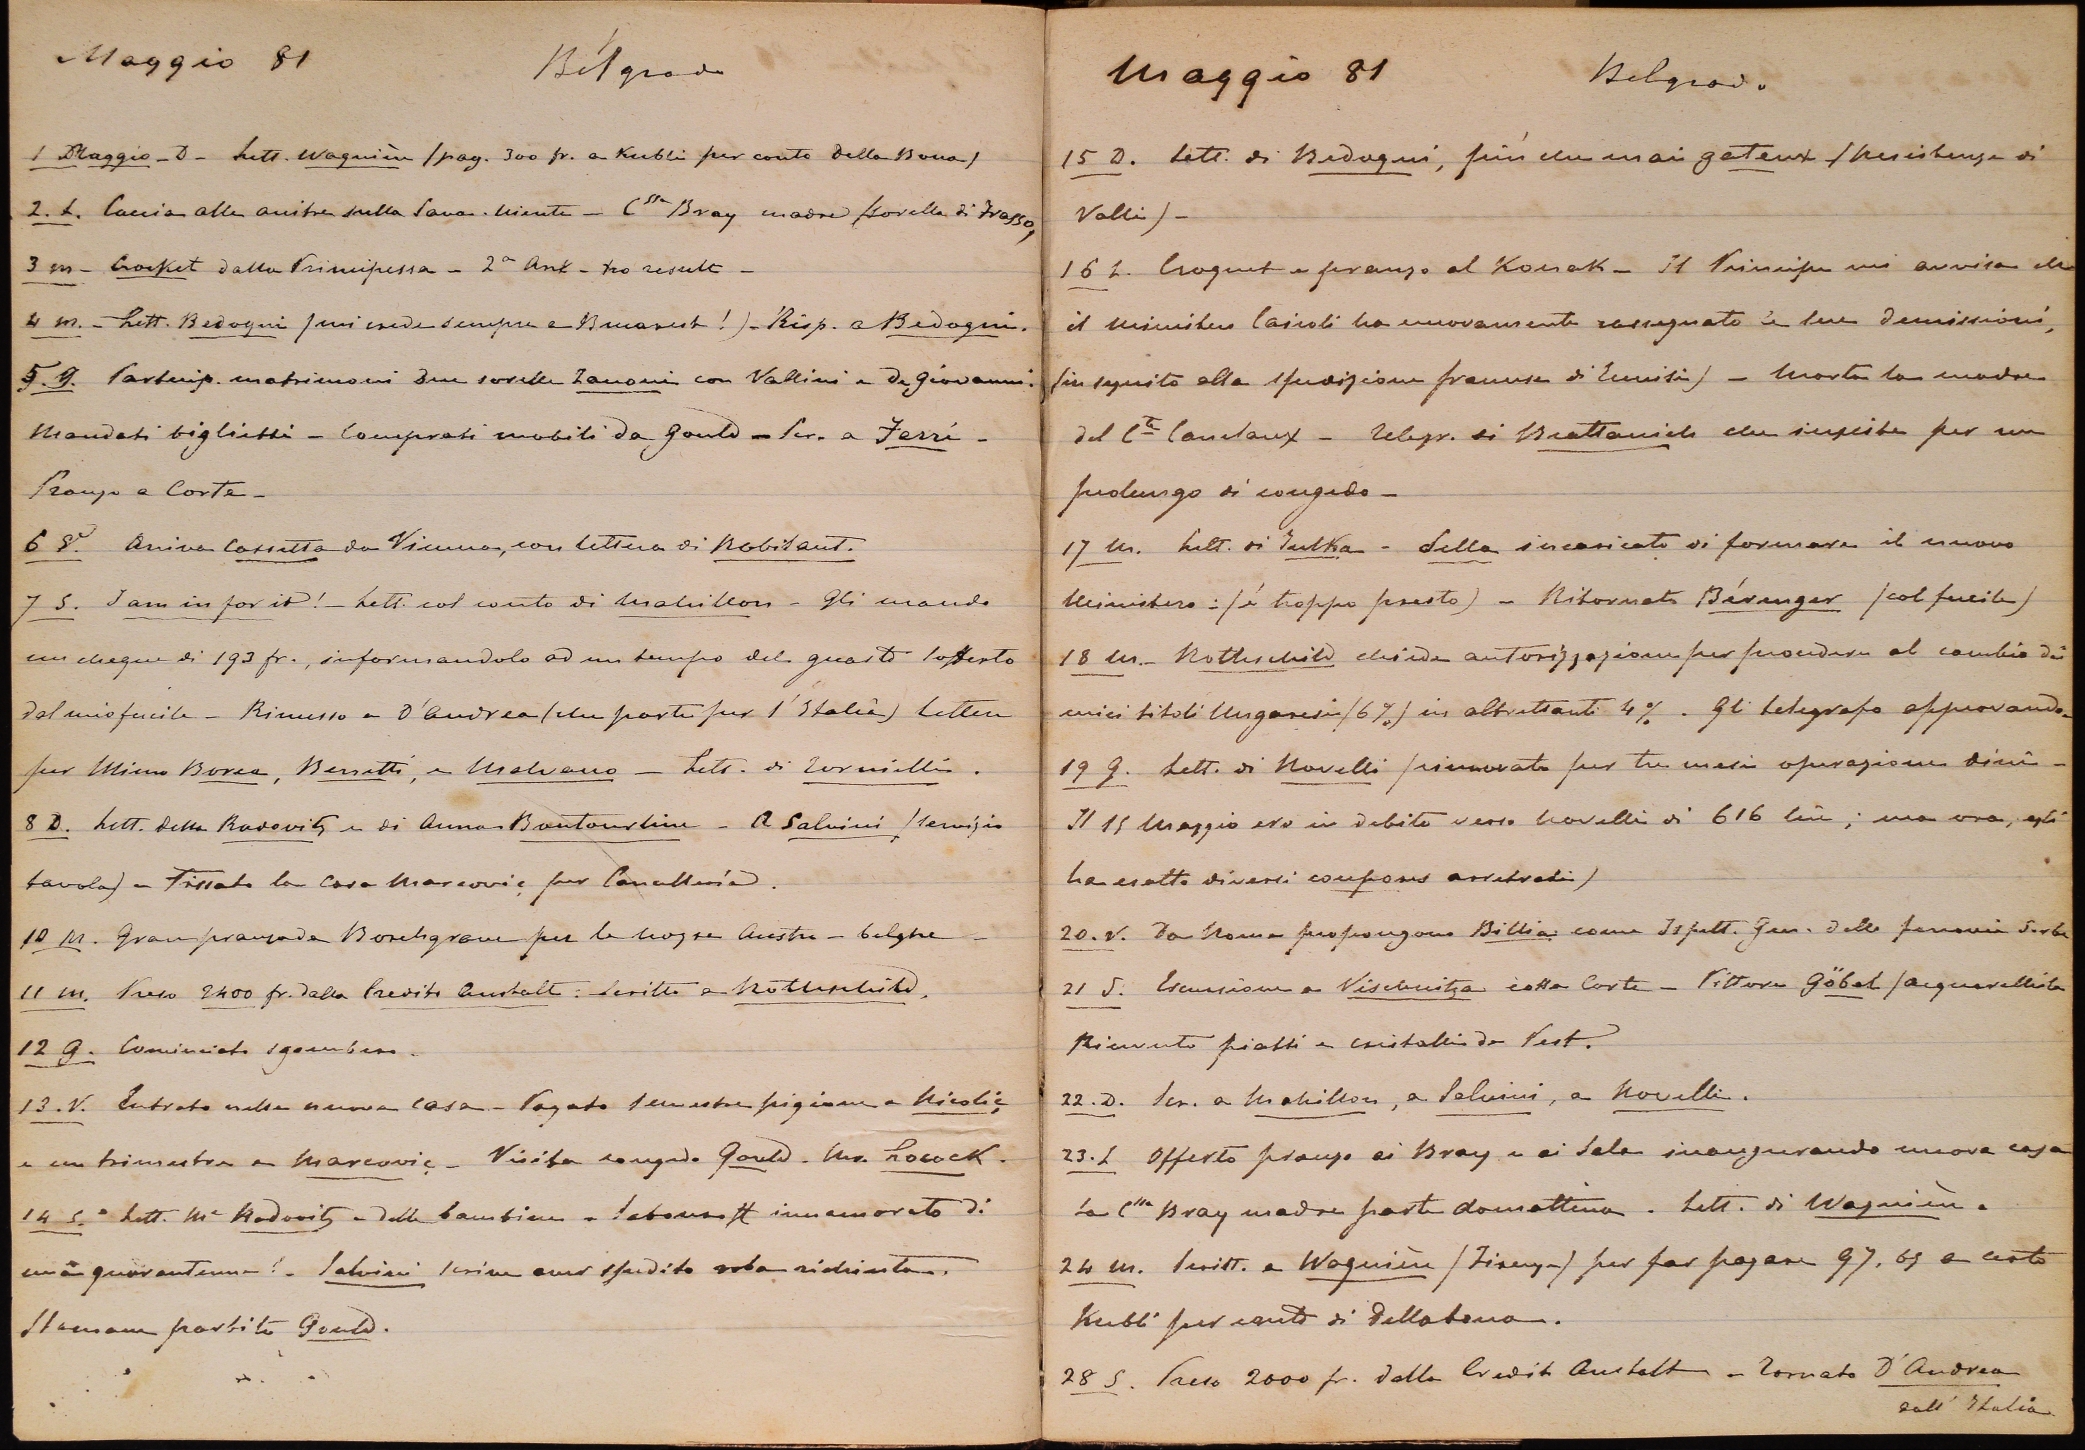 Maggio 81 Belgrado
1 Maggio - D - Lett. Wagnière (pag. 300 fr. a Kubli per conto Della Bona)
2. L. Caccia alle anitre sulla Sava. Niente - Cssa Bray madre (sorella di Frasso)
3 m - Crocket dalla Principessa - 2a - no result -
4 m. - Lett. Bedogni (mi crede sempre a Bucarest!) - Risp. a Bedogni.
5. G. Partecip. matrimoni due sorelle Zanoni con Vallini e De Giovanni.
Mandati biglietti - Comprati mobili da Gould - Scr. a Ferré -
Pranzo a Corte -
6 V. Arriva cassetta da Vienna, con lettera di Robilant.
7 S. I am in for it! - Lett. col conto di Mahillon - Gli mando
un cheque di 193 fr., informandolo ad un tempo del guasto sofferto
dal mio fucile - Rimesso a D'Andrea (che parte per l'Italia) lettere
per Mimo Borea, Berretti, e Malvano - Lett. di Tornielli.
8 D. Lett. della Radovitz e di Anna Boutourline - A Salvini (servizio
tavola) - Fissata la casa Marcovic per Cancelleria.
10 M. Gran pranzo da Borchgrave per le nozze Austro-belghe -
11 m. Preso 2400 fr. dalla Credit Anstalt: scritto a Rothschild.
12 G. Cominciato sgombero.
13. V. Entrato nella nuova casa - Pagato semestre pigione a Nicolic,
e un trimestre a Marcovic - Visita congedo Gould. Mr. Locock.
14 S. Lett. Me Radovitz e delle bambine - innamorato di
una quarantenne! - Salvini scrive aver spedito roba richiesta.
Stamane partito Gould.
Maggio 81 Belgrado
15 D. Lett. di Bedogni, più che mai gateux (Resistenza di
Valli) -
16 L. Croquet e pranzo al Konak - Il Principe mi avvisa che
il ministero Cairoli ha nuovamente rassegnato le sue demissioni,
(in seguito alla spedizione francese di Tunisi) - Morta la madre
del Cte Canclaux - Telegr. di Brattanich che insiste per un
prolungo di congedo -
17 M. Lett. di Julka - Sella incaricato di formare il nuovo
Ministero: (è troppo presto) - Ritornato Bérenger (col fucile)
18 M. - Rothschild chiede autorizzazione per procedere al cambio dei
miei titoli Ungaresi (6%) in altrettanti 4%. Gli telegrafo approvando.
19 G. Lett. di Novelli (rinnovata per tre mesi operazione -
Il 15 Maggio ero in debito verso Novelli di 616 lire; ma ora, egli
ha esatto diversi coupons arretrati)
20. V. Da Roma propongono Billia come Ispett. Gen. delle ferrovie Serbe
21 S. Escursione a Vischnitza colla Corte - Pittore Göbel (acquarellista
Ricevuto piatti e cristalli da Pest.
22. D. Scr. a Mahillon, a Salvini, a Novelli.
23. L Offerto pranzo ai Bray e ai Sala inaugurando nuova casa
La Cssa Bray madre parte domattina. Lett. di Wagnière.
24 M. Scritt. a Wagnière (Firenze) per far pagare 97, 65 a certo
Kubli per conto di Dellabona.
28 S. Preso 2000 fr. dalla Credit Anstalt - Tornato D'Andrea
dall'Italia